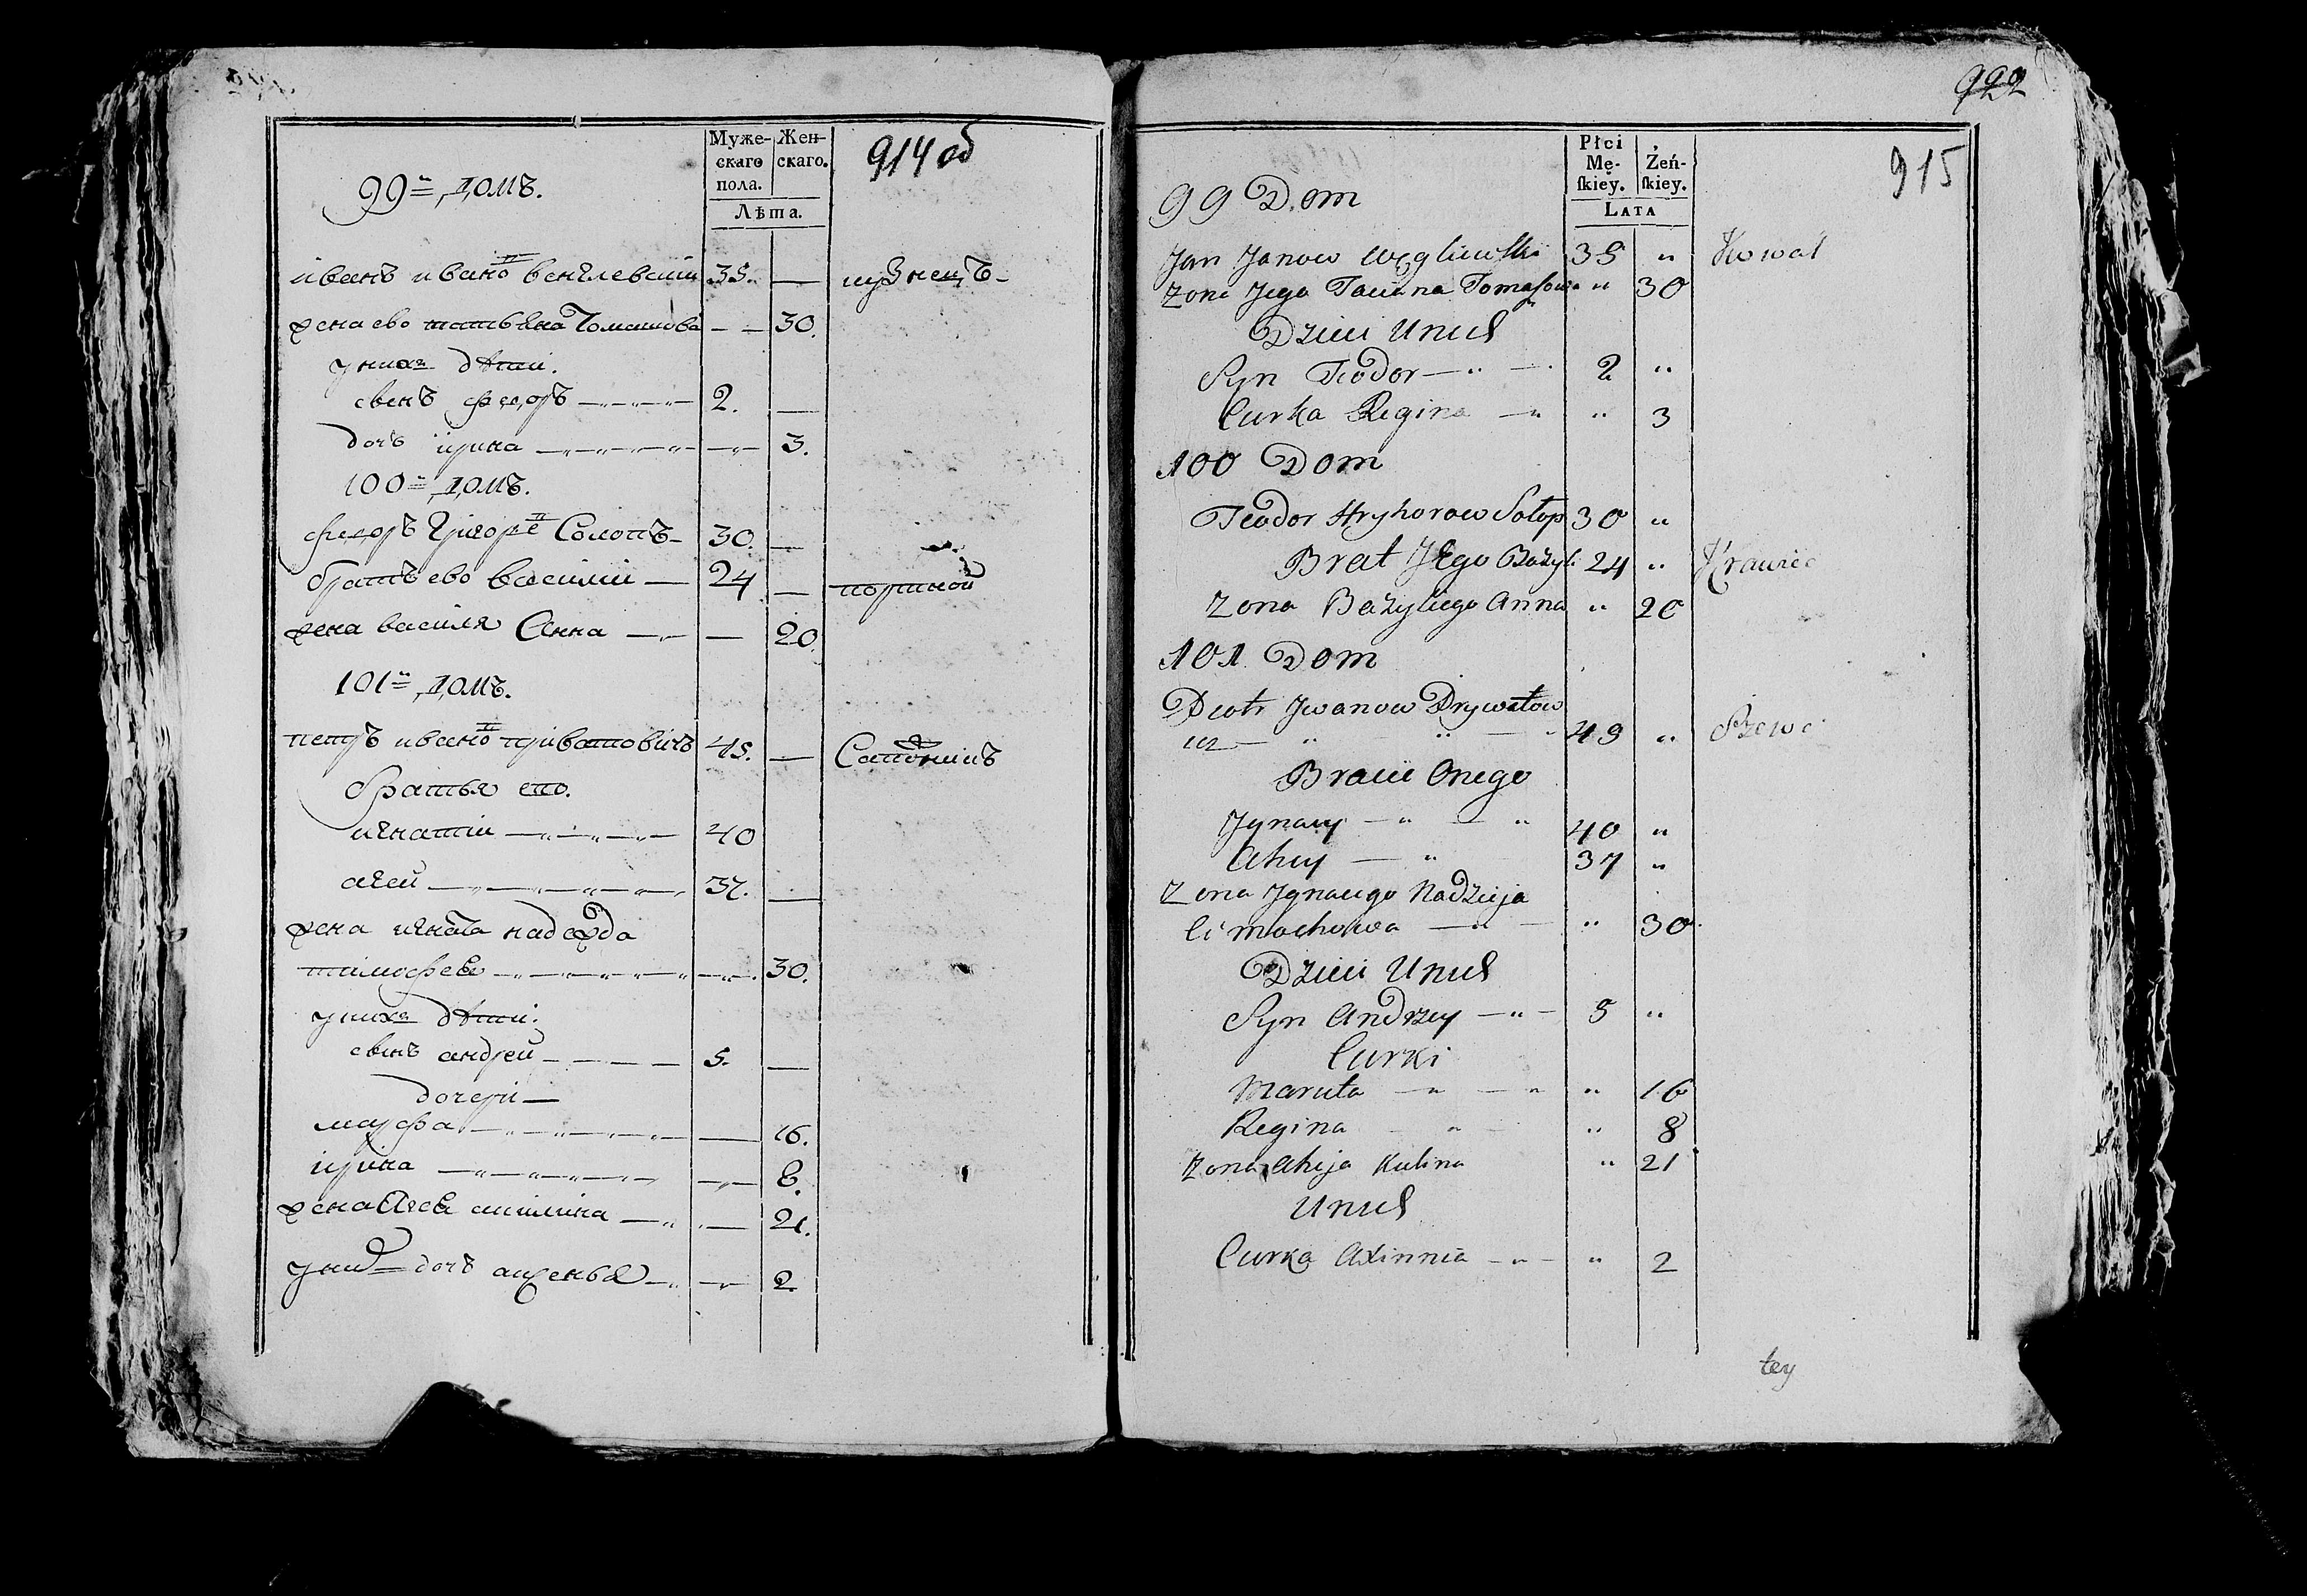 914 об
Муже-
скаго
пола.
Жен-
скаго.
Лѣта.
99й домъ.
иванъ ивано въ венглевский 35. — кузнецъ
жена ево татьяна Томашова — 30.
у них дѣти.
сынъ федоръ — 2. —
дочь ирина — 3.
100й домъ.
федоръ Григорье въ Солопъ — 30. —
братъ ево василий — 24 — портной
жена василя Анна — 20
101й домъ.
петръ ивано въ приватовичъ 45. — Сапожникъ
братья его.
игнатий — 40
агей — 37. —
жена игната надежда
тимофева — 30.
у них дѣти.
сынъ андрей — 5. —
дочери —
марфа — 16.
ирина — 8.
жена Агея акилина — 21.
у них дочь аксенья — 2
922
915
Płci
Mę-
skiey.
Żeń-
skiey.
LATA
99 Dom
Jan Janow Węgliewski 35 „ Kowal
Zona Jego Taciana Tomasowa „ 30
Dzieci Unich
Syn Teodor — 2 „
Curka Regina — „ 3
100 Dom
Teodor Hryhorow Sołop 30 „
Brat Jego Bazyli 24 „ Krawiec
Zona Bazyliego Anna „ 20
101 Dom
Piotr Jwanow Prywatow
icz — 49 „ Szewc
Bracie Onego
Jgnacy — 40 „
Ahiy — 37 „
Zona Jgnacego Nadzieja
Cimochowa — „ 30
Dzieci Unich
Syn Andrzey — 5 „
Curki
Maruta — „ 16
Regina — „ 8
Zona Ahija Kulina „ 21
Unich
Curka Axinnia — „ 2
tey